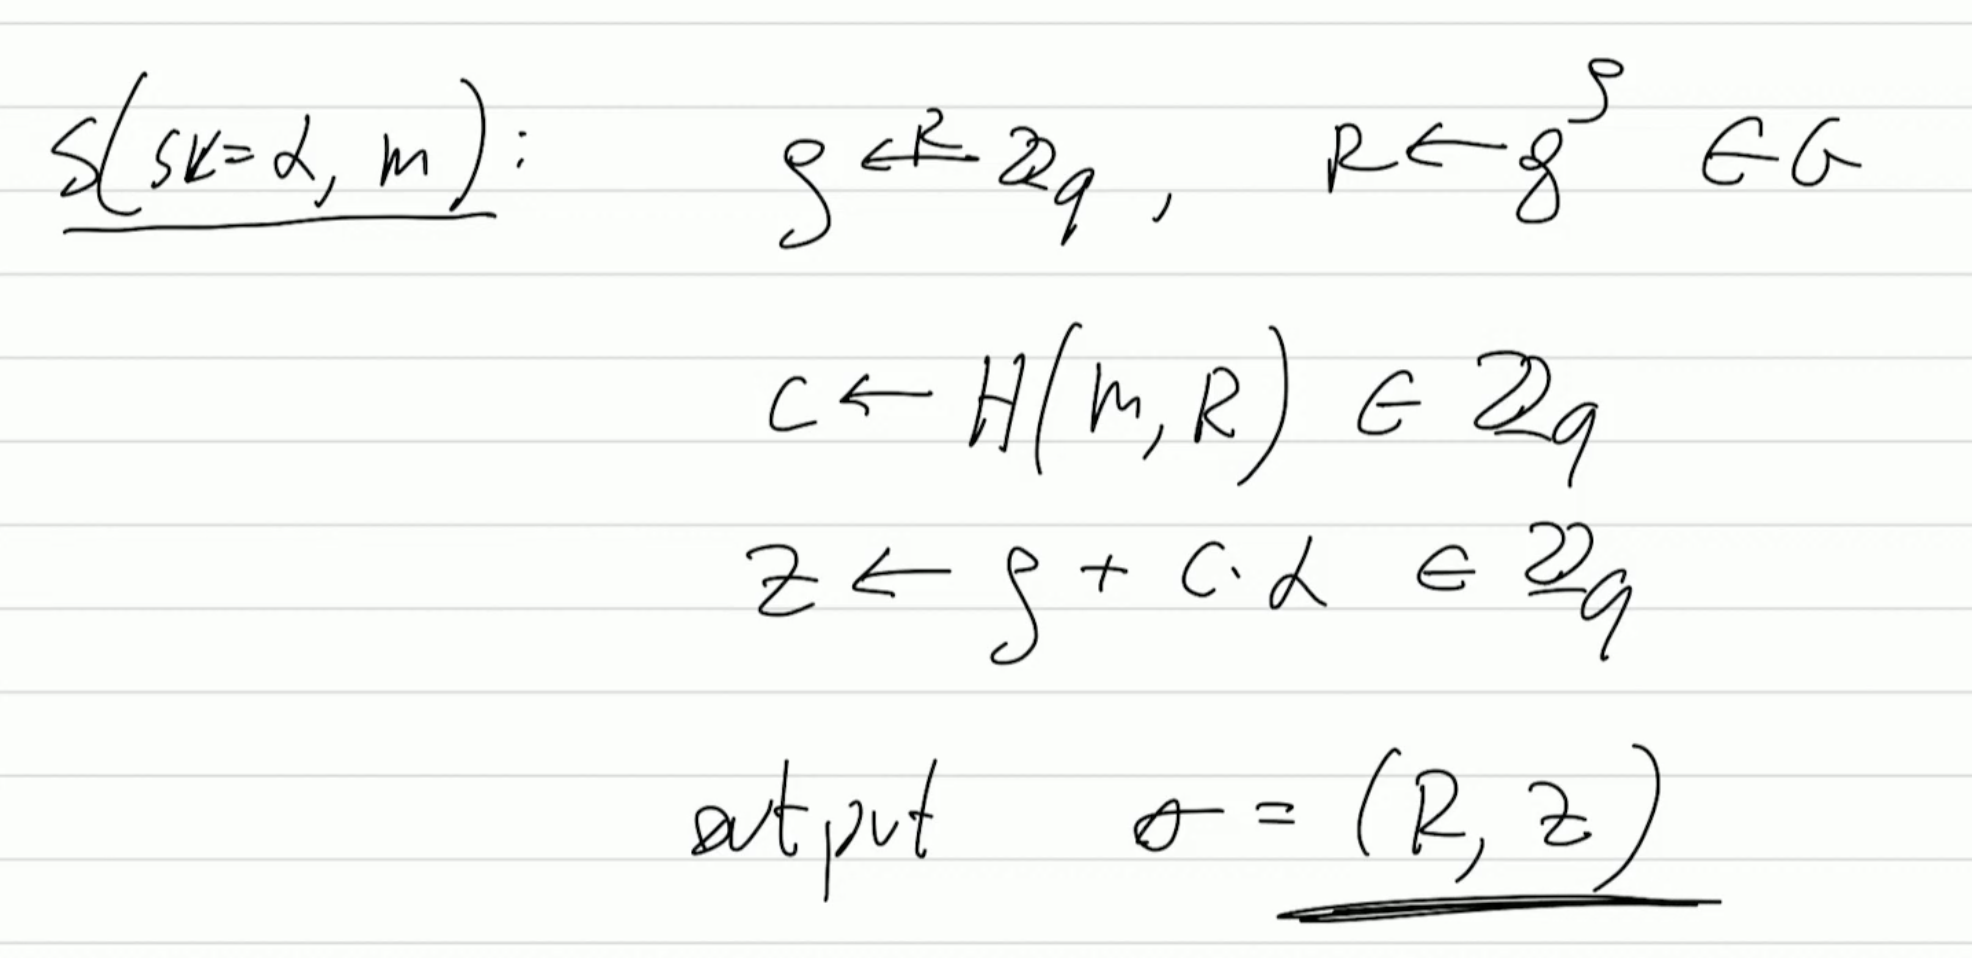 S(sk=α, m): ρ ←R ℤq, R ← g^ρ ∈ G
c ← H(m, R) ∈ ℤq
z ← ρ + c·α ∈ ℤq
output σ = (R, z)